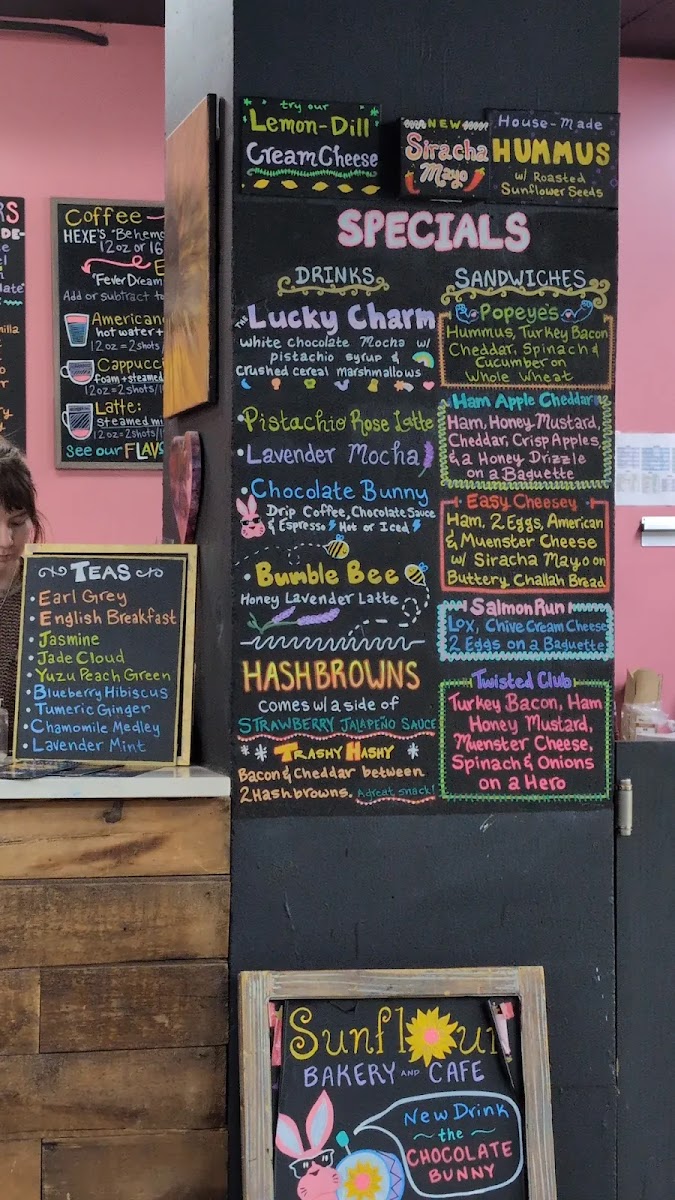 RS
Coffee
HEXE'S "Behem
12oz or 16
"Fever Dream
Add or subtract to
American
hot water +
12oz = 2shots
Cappucci
foam + steamed
12oz = 2shots/1
Latte:
steamed mi
12oz = 2shots/1
See our FLAV
TEAS
• Earl Grey
• English Breakfast
• Jasmine
• Jade Cloud
• Yuzu Peach Green
• Blueberry Hibiscus
• Tumeric Ginger
• Chamomile Medley
• Lavender Mint
try our
Lemon-Dill
Cream Cheese
NEW
Siracha
Mayo
House-Made
HUMMUS
w/ Roasted
Sunflower Seeds
SPECIALS
DRINKS
THE Lucky Charm
White Chocolate Mocha w/
pistachio syrup &
crushed cereal marshmallows
• Pistachio Rose Latte
• Lavender Mocha
• Chocolate Bunny
Drip Coffee, Chocolate Sauce
& Espresso Hot or Iced
• Bumble Bee
Honey Lavender Latte
HASHBROWNS
Comes w/ a side of
STRAWBERRY JALAPEÑO SAUCE
TRASHY HASHY
Bacon & Cheddar between
2 Hashbrowns. A great snack!
SANDWICHES
Popeye's
Hummus, Turkey Bacon
Cheddar, Spinach &
Cucumber on
Whole Wheat
Ham Apple Cheddar
Ham, Honey Mustard,
Cheddar, Crisp Apples,
& a Honey Drizzle
on a Baguette
Easy Cheesey
Ham, 2 Eggs, American
& Muenster Cheese
w/ Siracha Mayo on
Buttery Challah Bread
Salmon Run
Lox, Chive Cream Cheese
2 Eggs on a Baguette
Twisted Club
Turkey Bacon, Ham
Honey Mustard,
Muenster Cheese,
Spinach & Onions
on a Hero
Sunflour
BAKERY AND CAFE
New Drink
~ the ~
CHOCOLATE
BUNNY